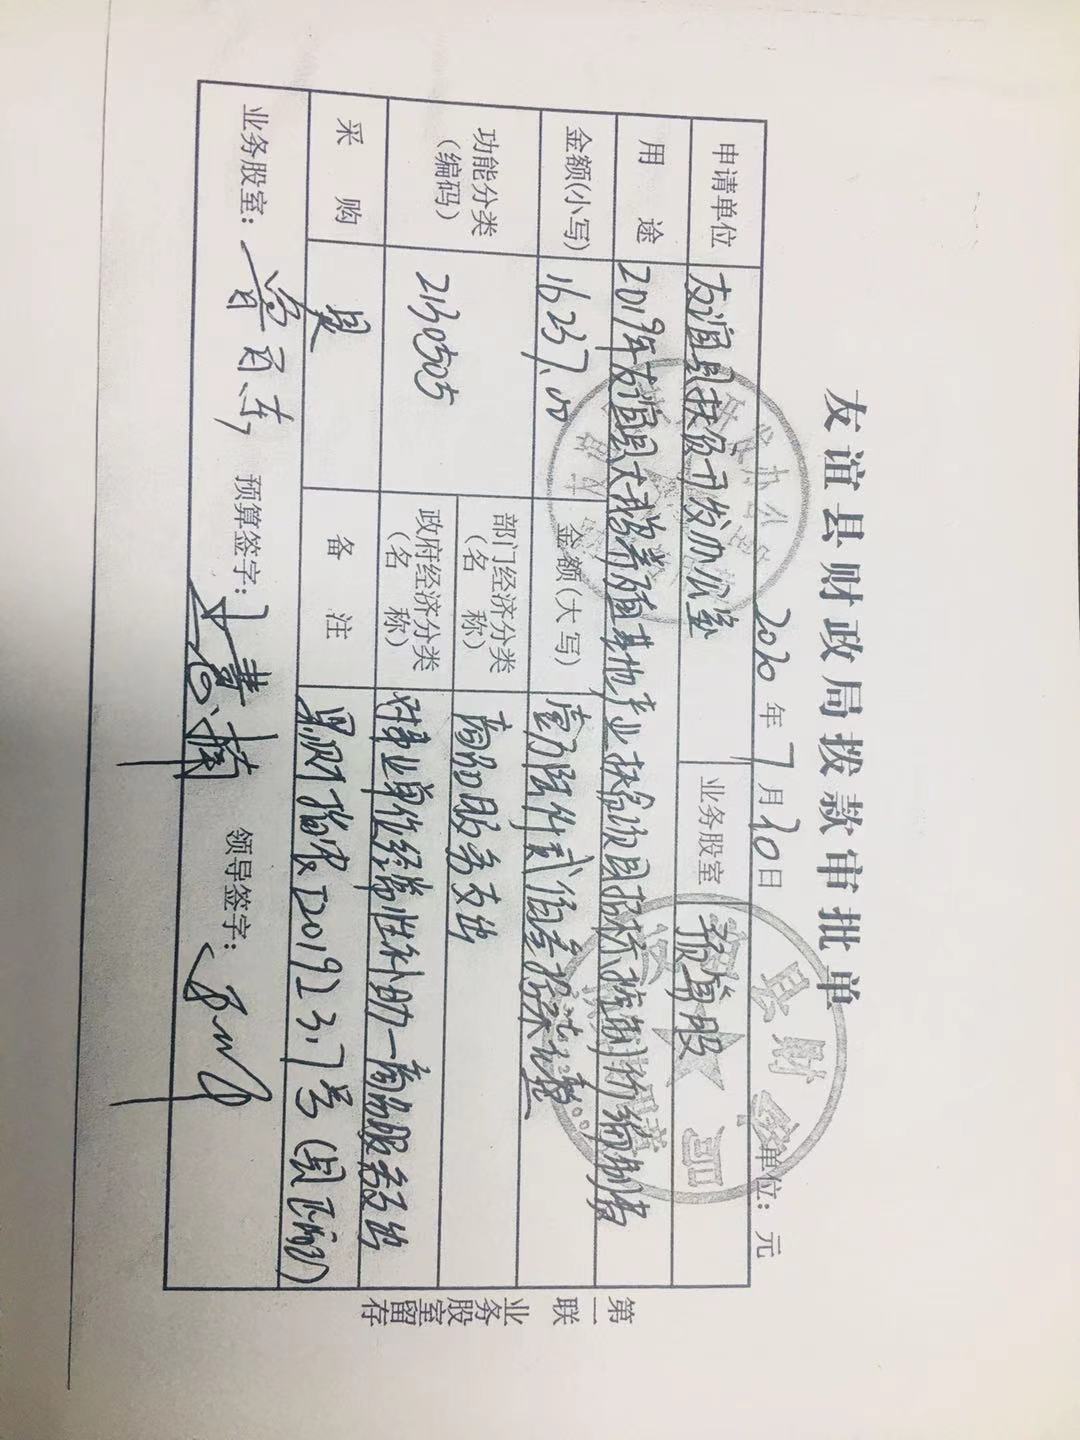 友谊县财政局拨款审批单
2020年7月20日 单位：元
申请单位 友谊县扶贫开发办公室 业务股室 预算股
用途 2019年友谊县大鹅养殖基地产业扶贫项目招标控制价编制费
金额(小写) 16237.00 金额(大写) 壹万陆仟贰佰叁拾柒元整
功能分类(编码) 2130505 部门经济分类(名称) 商品服务支出
政府经济分类(名称) 对事业单位经常性补助—商品服务支出
采购 备注 黑财指农[2019]237号
业务股室： 预算签字： 领导签字：
第一联 业务股室留存